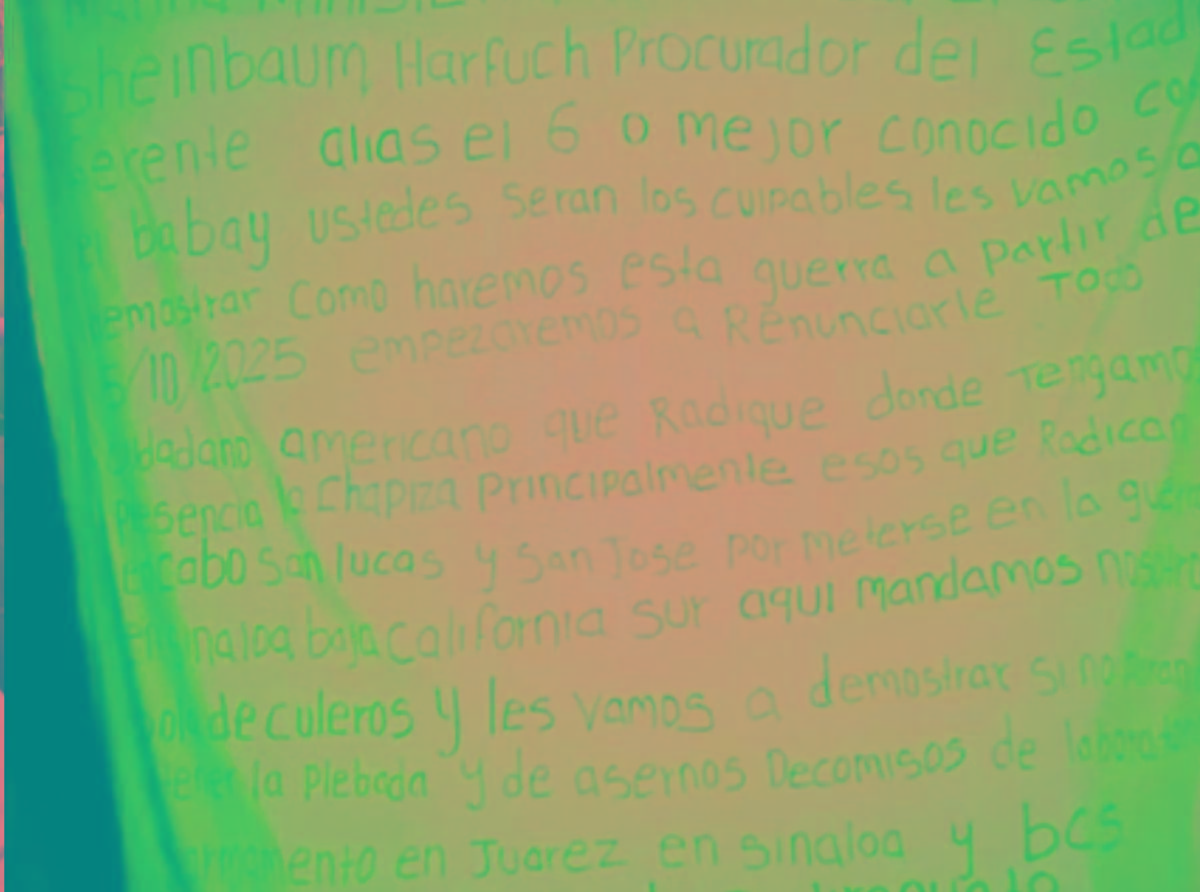 Sheinbaum Harfuch Procurador del Estad
Gerente alias el 6 o mejor conocido co
el babay ustedes seran los culpables les vamos a
demostrar como haremos esta guerra a partir de
/10/2025 empezaremos a Renunciarle Todo
dadano americano que Radique donde Tengamo
Presencia la Chapiza Principalmente esos que Radican
en cabo San lucas y San Jose por meterse en la guerr
en sinaloa baja California sur aqui mandamos nostr
de culeros y les vamos a demostrar si no
la Plebada y de asernos Decomisos de laborat
armamento en Juarez en sinaloa y bcs